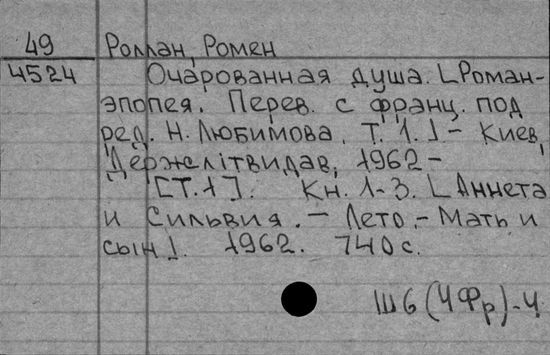 49 Роллан, Ромен
4524 Очарованная душа. [Роман-
эпопея. Перев. с франц. под
ред. Н. Любимова. Т. 1.] - Киев,
Держлітвидав, 1962 -
[Т. 1]. Кн. 1-3. [Аннета
и Сильвия. - Лето. - Мать и
сын]. 1962. 740 с.
Ш6(4Фр)-4